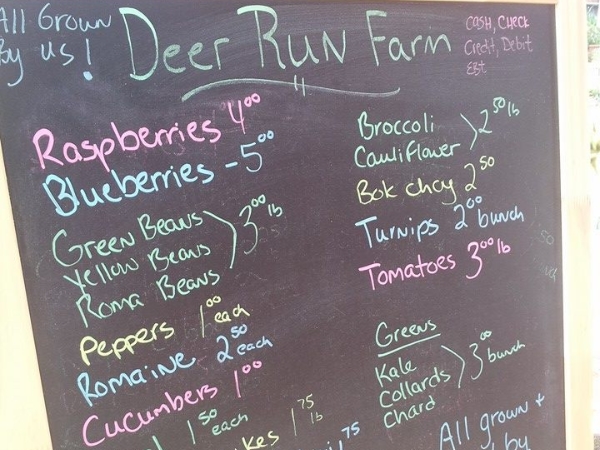 All Grown
By us!
Deer Run Farm
Cash, Check
Credit, Debit
EBT
Raspberries 4.00
Blueberries - 5.00
Green Beans
Yellow Beans
Roma Beans
3.00 lb
Peppers 1.00 each
Romaine 2.50 each
Cucumbers 1.00
1.50 each
Broccoli
Cauliflower
2.50 lb
Bok choy 2.50
Turnips 2.00 bunch
Tomatoes 3.00 lb
Greens
Kale
Collards
Chard
3.00 bunch
kes 1.75 lb
.75
All grown +
by